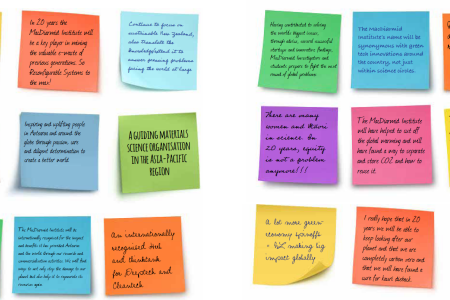 In 20 years the
MacDiarmid Institute will
be a key player in moving
the valuable e-waste of
previous generations. So
Reconfigurable Systems to
the max!
Continue to focus on
sustainable New Zealand,
also translate the
knowledge and it to
answer pressing problems
facing the world at large
Inspiring and uplifting people
in Aotearoa and around the
globe through passion, care
and diligent determination to
create a better world.
A GUIDING MATERIALS
SCIENCE ORGANISATION
IN THE ASIA-PACIFIC
REGION
The MacDiarmid Institute will be
internationally recognised for the
and benefits of has provided Aotearoa
and the world through our research and
communication activities. We will find
ways to not only stop the damage to our
planet but also help it to regenerate its
resources again
An internationally
recognised Hub
and thinktank
for Deeptech and
Cleantech
Having contributed to solving
the worlds biggest issues,
through advice, several successful
startups and innovative findings,
MacDiarmid Investigators and
students prepare to fight the next
round of global problems.
The macdiarmid
institute's name will be
synonymous with green
tech innovations around
the country, not just
within science circles.
There are many
women and Māori
in science. In
20 years, equity
is not a problem
anymore!!!
The MacDiarmid Institute will
have helped to cut off
the global warming and will
have found a way to separate
and store CO2 and how to
reuse it.
A lot more green
economy spinoffs
- NZ making big
impact globally
I really hope that in 20
years we will be able to
keep looking after our
planet and that we are
completely carbon zero and
that we will have found a
cure for heart disease.